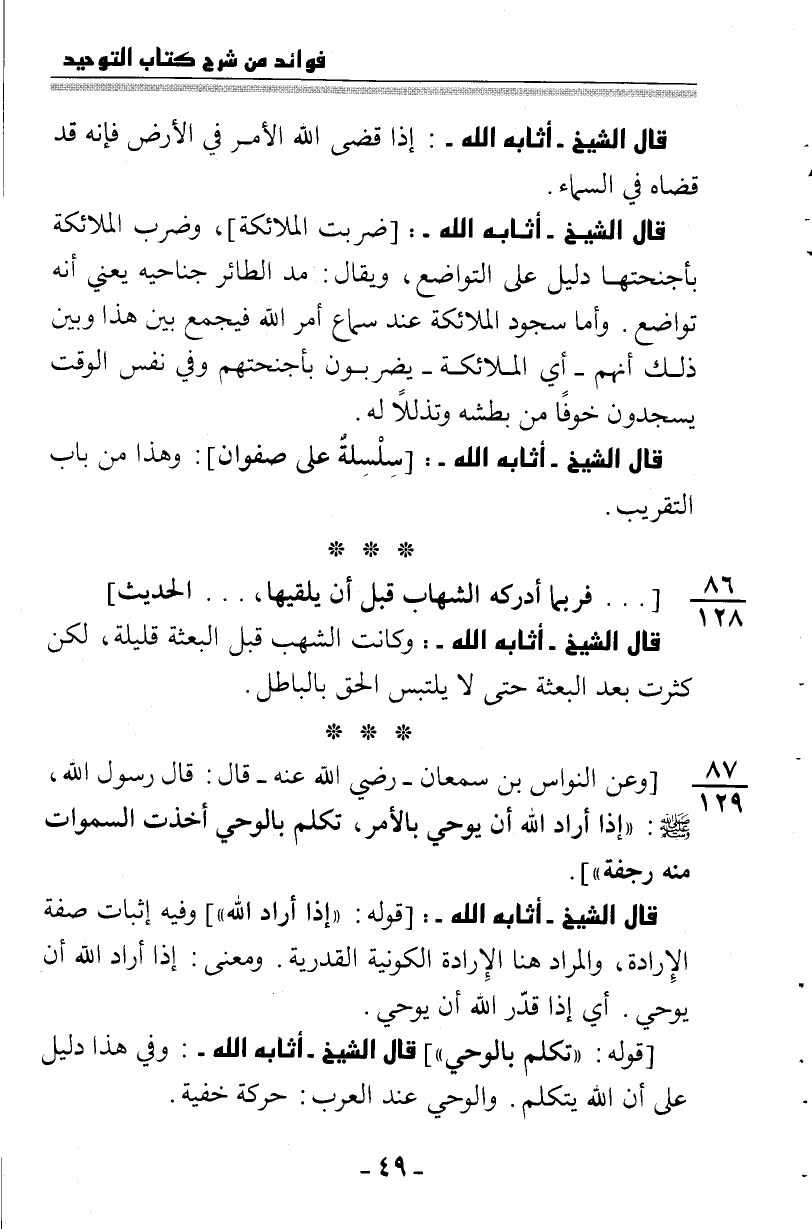 فوائد من شرح كتاب التوحيد
قال الشيخ ـ أثابه الله ـ : إذا قضى الله الأمـر في الأرض فإنه قد
قضاه في السماء .
قال الشيـخ ـ أثـابـه الله ـ : [ضربت الملائكة] ، وضرب الملائكة
بأجنحتهـا دليل على التواضع ، ويقال : مد الطائر جناحيه يعني أنه
تواضع . وأما سجود الملائكة عند سماع أمر الله فيجمع بين هذا وبين
ذلـك أنهم ـ أي المـلائكـة ـ يضربـون بأجنحتهم وفي نفس الوقت
يسجدون خوفًا من بطشه وتذللًا له .
قال الشيخ ـ أثابه الله ـ : [سِلْسِلةٌ على صفوان] : وهذا من باب
التقريب .
* * *
٨٦
١٢٨
[ . . . فربما أدركه الشهاب قبل أن يلقيها ، . . . الحديث]
قال الشيخ ـ أثابه الله ـ : وكانت الشهب قبل البعثة قليلة ، لكن
كثرت بعد البعثة حتى لا يلتبس الحق بالباطل .
* * *
٨٧
١٢٩
[وعن النواس بن سمعان ـ رضي الله عنه ـ قال : قال رسول الله ،
ﷺ : «إذا أراد الله أن يوحي بالأمر ، تكلم بالوحي أخذت السموات
منه رجفة»] .
قال الشيخ ـ أثابه الله ـ : [قوله : «إذا أراد الله»] وفيه إثبات صفة
الإِرادة ، والمراد هنا الإِرادة الكونية القدرية . ومعنى : إذا أراد الله أن
يوحي . أي إذا قدّر الله أن يوحي .
[قوله : «تكلم بالوحي»] قال الشيخ ـ أثابه الله ـ : وفي هذا دليل
على أن الله يتكلم . والوحي عند العرب : حركة خفية .
- ٤٩ -